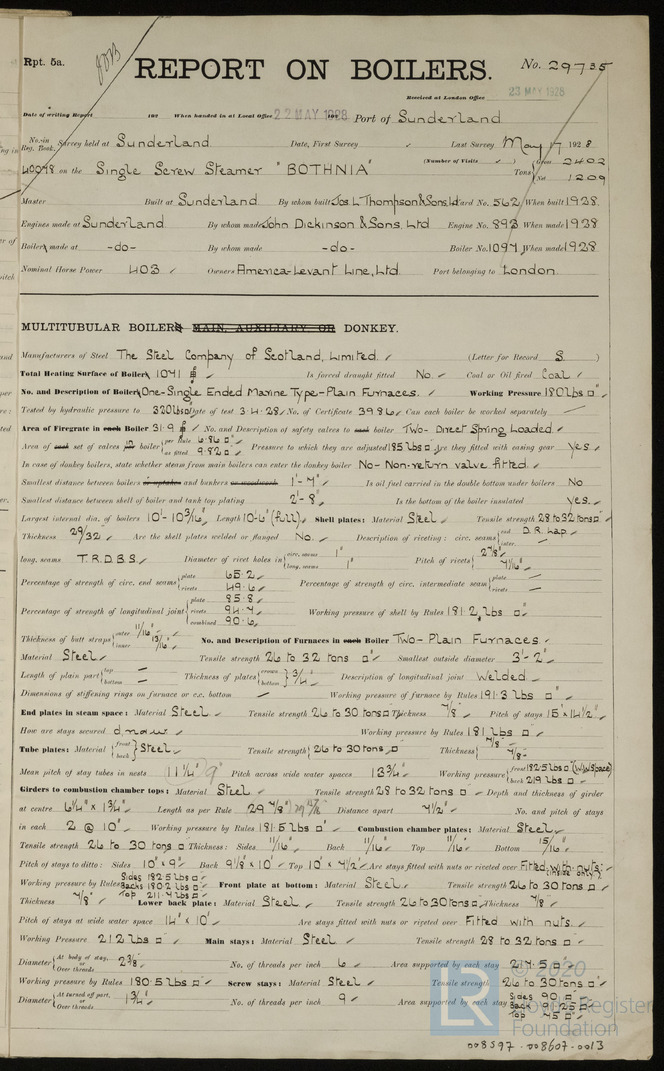 Rpt. 5a.
REPORT ON BOILERS.
No. 29735
23 MAY 1928
Received at London Office
Date of writing Report 192 When handed in at Local Office 22 MAY 1928 192 Port of Sunderland
No. in Reg. Book. Survey held at Sunderland Date, First Survey Last Survey May 17 1928
(Number of Visits )
40078 on the Single Screw Steamer "BOTHNIA" Tons { Gross 2402 Net 1209
Master Built at Sunderland By whom built Jos. L. Thompson & Sons, Ltd Yard No. 562 When built 1928
Engines made at Sunderland By whom made John Dickinson & Sons, Ltd Engine No. 893 When made 1928
Boiler made at -do- By whom made -do- Boiler No. 1097 When made 1928
Nominal Horse Power 403 Owners America-Levant Line, Ltd. Port belonging to London
MULTITUBULAR BOILERS MAIN, AUXILIARY OR DONKEY.
Manufacturers of Steel The Steel Company of Scotland, Limited. (Letter for Record S )
Total Heating Surface of Boiler 1041 Is forced draught fitted No. Coal or Oil fired Coal
No. and Description of Boilers One-Single Ended Marine Type-Plain Furnaces. Working Pressure 180 lbs □"
Tested by hydraulic pressure to 320 lbs □" Date of test 3.4.28 No. of Certificate 3986 Can each boiler be worked separately —
Area of Firegrate in each Boiler 31.9 No. and Description of safety valves to each boiler Two- Direct Spring Loaded.
Area of each set of valves per boiler { per Rule 6.86 □" as fitted 9.82 □" Pressure to which they are adjusted 185 lbs □" Are they fitted with easing gear Yes.
In case of donkey boilers, state whether steam from main boilers can enter the donkey boiler No- Non-return valve fitted.
Smallest distance between boilers or uptakes and bunkers or woodwork 1'-7" Is oil fuel carried in the double bottom under boilers No
Smallest distance between shell of boiler and tank top plating 2'-8" Is the bottom of the boiler insulated Yes.
Largest internal dia. of boilers 10'-10 3/16" Length 10'-6" (full) Shell plates: Material Steel Tensile strength 28 to 32 tons □"
Thickness 29/32" Are the shell plates welded or flanged No. Description of riveting: circ. seams { end D.R. Lap. inter. —
long. seams T.R.D.B.S. Diameter of rivet holes in { circ. seams 1" long. seams 1" Pitch of rivets { 2 7/8" 7 1/16"
Percentage of strength of circ. end seams { plate 65.2 rivets 49.6 Percentage of strength of circ. intermediate seam { plate — rivets —
Percentage of strength of longitudinal joint { plate 85.8 rivets 94.7 combined 90.6 Working pressure of shell by Rules 181.2 lbs □"
Thickness of butt straps { outer 11/16" inner 13/16" No. and Description of Furnaces in each Boiler Two- Plain Furnaces.
Material Steel Tensile strength 26 to 32 tons Smallest outside diameter 3'-2"
Length of plain part { top — bottom — Thickness of plates { crown bottom } 3/4" Description of longitudinal joint Welded
Dimensions of stiffening rings on furnace or c.c. bottom — Working pressure of furnace by Rules 191.3 lbs □"
End plates in steam space: Material Steel Tensile strength 26 to 30 tons □" Thickness 7/8" Pitch of stays 15" x 14 1/2"
How are stays secured d.n.&w. Working pressure by Rules 181 lbs □"
Tube plates: Material { front back } Steel Tensile strength { 26 to 30 tons □" Thickness { 7/8" 7/8"
Mean pitch of stay tubes in nests 11 1/4" Pitch across wide water spaces 13 3/4" Working pressure { front 182.5 lbs □" (W.W. Space) back 219 lbs □"
Girders to combustion chamber tops: Material Steel Tensile strength 28 to 32 tons □" Depth and thickness of girder
at centre 6 1/4" x 1 3/4" Length as per Rule 29 7/8" Distance apart 7 1/2" No. and pitch of stays
in each 2 @ 10" Working pressure by Rules 181.5 lbs □" Combustion chamber plates: Material Steel
Tensile strength 26 to 30 tons □" Thickness: Sides 11/16" Back 11/16" Top 11/16" Bottom 15/16"
Pitch of stays to ditto: Sides 10" x 9" Back 9 1/8" x 10" Top 10" x 7 1/2" Are stays fitted with nuts or riveted over Fitted with nuts: (inside only)
Working pressure by Rules Sides 182.5 lbs □" Backs 180.2 lbs □" Top 211.4 lbs □" Front plate at bottom: Material Steel Tensile strength 26 to 30 tons □"
Thickness 7/8" Lower back plate: Material Steel Tensile strength 26 to 30 tons □" Thickness 7/8"
Pitch of stays at wide water space 14" x 10" Are stays fitted with nuts or riveted over Fitted with nuts.
Working Pressure 212 lbs □" Main stays: Material Steel Tensile strength 28 to 32 tons □"
Diameter { At body of stay, or Over threads 2 3/8" No. of threads per inch 6 Area supported by each stay 217.5 □"
Working pressure by Rules 180.5 lbs □" Screw stays: Material Steel Tensile strength 26 to 30 tons □"
Diameter { At turned off part, or Over threads 1 3/4" No. of threads per inch 9 Area supported by each stay Sides 90 □" Back 91.25 □" Top 75 □"
© 2020
LR
Lloyd's Register
Foundation
008597-008607-0013